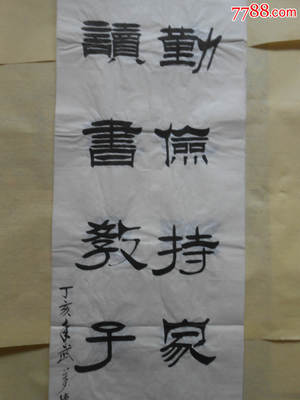 勤儉持家
讀書教子
丁亥年武
7788.com